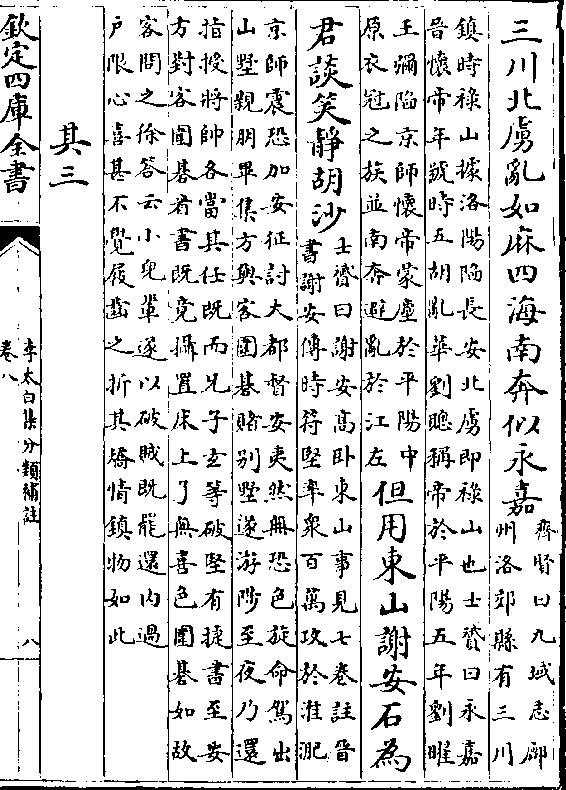 三川北虜亂如麻四海南奔似永嘉
齊賢曰九域志鄜
州洛郊縣有三川
鎮時祿山據洛陽陷長安北虜即祿山也士贇曰永嘉
晉懷帝年號時五胡亂華劉聰稱帝於平陽五年劉曜
王彌陷京師懷帝蒙塵於平陽中
原衣冠之族並南奔避亂於江左
但用東山謝安石為
君談笑靜胡沙
士贇曰謝安髙臥東山事見七卷註晉
書謝安傳時苻堅率衆百萬攻於淮淝
京師震恐加安征討大都督安夷然無恐色旋命駕出
山墅親朋畢集方與客圍碁賭别墅遂游陟至夜乃還
指授將帥各當其任既而兄子玄等破堅有捷書至安
方對客圍碁看書既竟攝置床上了無喜色圍碁如故
客問之徐答云小兒輩遂以破賊既罷還内過
户限心喜甚不覺屐齒之折其矯情鎮物如此
其三
欽定四庫全書
李太白集分類補註
卷八
八